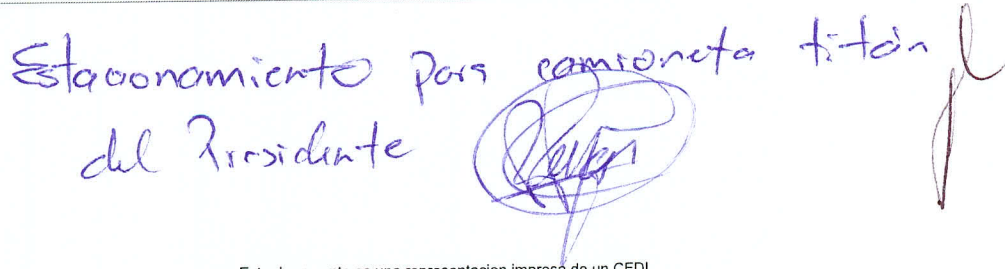 Estacionamiento para camioneta titán
del Presidente
Este documento es una representacion impresa de un CFDI